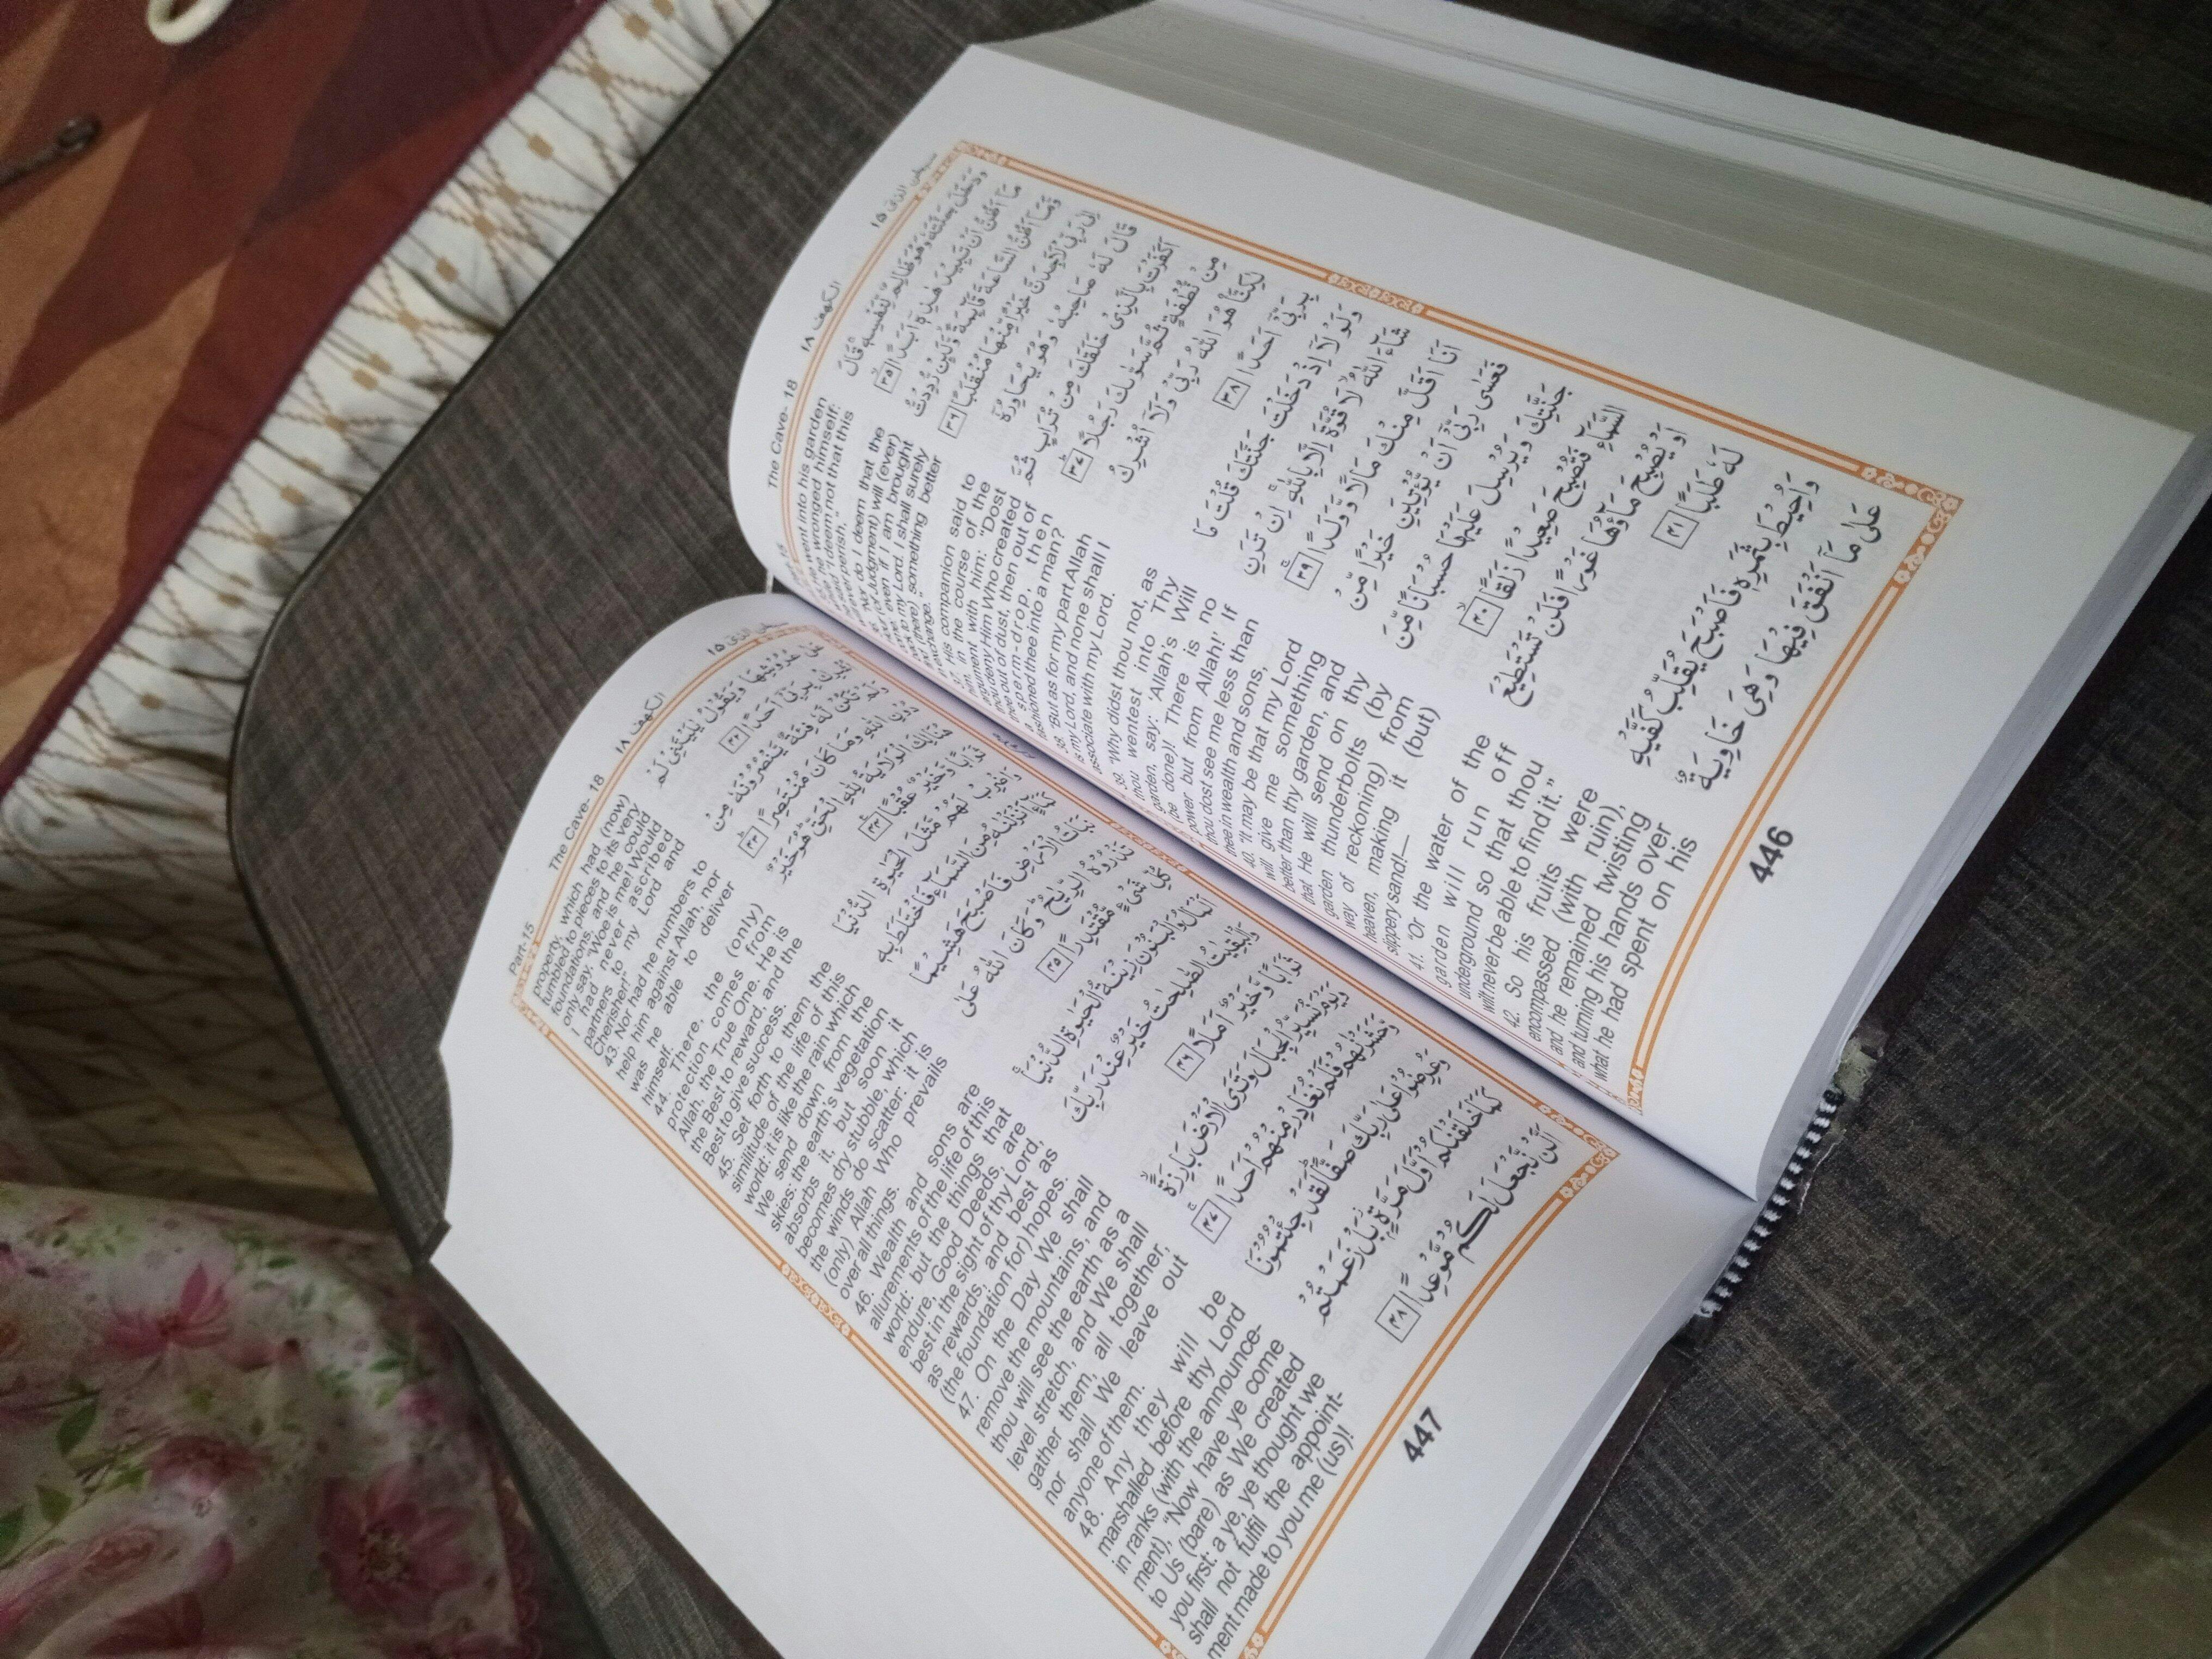 The Cave- 18
الكهف ١٨
سبحن الذى ١٥
He went into his garden
he wronged himself:
said, "I deem not that this
ever perish."
"Nor do I deem that the
(of Judgment) will (ever)
even if I am brought
to my Lord, I shall surely
(there) something better
exchange."
37. His companion said to
him, in the course of the
argument with him: "Dost
thou deny Him Who created
thee out of dust, then out of
a sperm-drop, then
fashioned thee into a man?
38. "But as for my part Allah
is my Lord, and none shall I
associate with my Lord.
39. "Why didst thou not, as
thou wentest into Thy
garden, say: 'Allah's Will
(be done)! There is no
power but from Allah!' If
thou dost see me less than
thee in wealth and sons,
40. "It may be that my Lord
will give me something
better than thy garden, and
that He will send on thy
garden thunderbolts (by
way of reckoning) from
heaven, making it (but)
slippery sand!—
41. "Or the water of the
garden will run off
underground so that thou
wilt never be able to find it."
42. So his fruits were
encompassed (with ruin),
and he remained twisting
and turning his hands over
what he had spent on his
وَدَخَلَ جَنَّتَهٗ وَهُوَ ظَالِمٌ لِّنَفْسِهٖ ۚ قَالَ
مَآ اَظُنُّ اَنْ تَبِيْدَ هٰذِهٖٓ اَبَدًا ۙ ٣٥
وَّمَآ اَظُنُّ السَّاعَةَ قَآئِمَةً ۙ وَّلَئِنْ رُّدِدْتُّ
اِلٰى رَبِّيْ لَاَجِدَنَّ خَيْرًا مِّنْهَا مُنْقَلَبًا ٣٦
قَالَ لَهٗ صَاحِبُهٗ وَهُوَ يُحَاوِرُهٗٓ
اَكَفَرْتَ بِالَّذِيْ خَلَقَكَ مِنْ تُرَابٍ ثُمَّ
مِنْ نُّطْفَةٍ ثُمَّ سَوّٰىكَ رَجُلًا ۗ ٣٧
لٰكِنَّا۠ هُوَ اللّٰهُ رَبِّيْ وَلَآ اُشْرِكُ
بِرَبِّيْٓ اَحَدًا ٣٨
وَلَوْلَآ اِذْ دَخَلْتَ جَنَّتَكَ قُلْتَ مَا
شَآءَ اللّٰهُ ۙ لَا قُوَّةَ اِلَّا بِاللّٰهِ ۚ اِنْ تَرَنِ
اَنَا اَقَلَّ مِنْكَ مَالًا وَّوَلَدًا ۚ ٣٩
فَعَسٰى رَبِّيْٓ اَنْ يُّؤْتِيَنِ خَيْرًا مِّنْ
جَنَّتِكَ وَيُرْسِلَ عَلَيْهَا حُسْبَانًا مِّنَ
السَّمَآءِ فَتُصْبِحَ صَعِيْدًا زَلَقًا ۙ ٤٠
اَوْ يُصْبِحَ مَآؤُهَا غَوْرًا فَلَنْ تَسْتَطِيْعَ
لَهٗ طَلَبًا ٤١
وَاُحِيْطَ بِثَمَرِهٖ فَاَصْبَحَ يُقَلِّبُ كَفَّيْهِ
عَلٰى مَآ اَنْفَقَ فِيْهَا وَهِيَ خَاوِيَةٌ
446
Part-15
The Cave- 18
الكهف ١٨
سبحن الذى ١٥
property, which had (now)
tumbled to pieces to its very
foundations, and he could
only say. "Woe is me! Would
I had never ascribed
partners to my Lord and
Cherisher!"
43 Nor had he numbers to
help him against Allah, nor
was he able to deliver
himself.
44. There, the (only)
protection comes from
Allah, the True One. He is
the Best to reward, and the
Best to give success.
45. Set forth to them the
similitude of the life of this
world: it is like the rain which
We send down from the
skies: the earth's vegetation
absorbs it, but soon it
becomes dry stubble, which
the winds do scatter: it is
(only) Allah Who prevails
over all things.
46. Wealth and sons are
allurements of the life of this
world: but the things that
endure, Good Deeds, are
best in the sight of thy Lord,
as rewards, and best as
(the foundation for) hopes.
47. On the Day We shall
remove the mountains, and
thou will see the earth as a
level stretch, and We shall
gather them, all together,
nor shall We leave out
anyone of them.
48. Any they will be
marshalled before thy Lord
in ranks (with the announce-
ment), "Now have ye come
to Us (bare) as We created
you first: a ye, ye thought we
shall not fulfil the appoint-
ment made to you me (us)!
عُرُوْشِهَا وَيَقُوْلُ يٰلَيْتَنِيْ لَمْ
اُشْرِكْ بِرَبِّيْٓ اَحَدًا ٤٢
تَكُنْ لَّهٗ فِئَةٌ يَّنْصُرُوْنَهٗ مِنْ
دُوْنِ اللّٰهِ وَمَا كَانَ مُنْتَصِرًا ۗ ٤٣
هُنَالِكَ الْوَلَايَةُ لِلّٰهِ الْحَقِّ ۗ هُوَ خَيْرٌ
ثَوَابًا وَّخَيْرٌ عُقْبًا ٤٤
وَاضْرِبْ لَهُمْ مَّثَلَ الْحَيٰوةِ الدُّنْيَا
كَمَآءٍ اَنْزَلْنٰهُ مِنَ السَّمَآءِ فَاخْتَلَطَ بِهٖ
نَبَاتُ الْاَرْضِ فَاَصْبَحَ هَشِيْمًا
تَذْرُوْهُ الرِّيٰحُ ۗ وَكَانَ اللّٰهُ عَلٰى
كُلِّ شَيْءٍ مُّقْتَدِرًا ٤٥
اَلْمَالُ وَالْبَنُوْنَ زِيْنَةُ الْحَيٰوةِ الدُّنْيَا ۚ
وَالْبٰقِيٰتُ الصّٰلِحٰتُ خَيْرٌ عِنْدَ رَبِّكَ
ثَوَابًا وَّخَيْرٌ اَمَلًا ٤٦
وَيَوْمَ نُسَيِّرُ الْجِبَالَ وَتَرَى الْاَرْضَ بَارِزَةً ۙ
وَّحَشَرْنٰهُمْ فَلَمْ نُغَادِرْ مِنْهُمْ اَحَدًا ۚ ٤٧
وَعُرِضُوْا عَلٰى رَبِّكَ صَفًّا ۗ لَقَدْ جِئْتُمُوْنَا
كَمَا خَلَقْنٰكُمْ اَوَّلَ مَرَّةٍ ۢ بَلْ زَعَمْتُمْ
اَلَّنْ نَّجْعَلَ لَكُمْ مَّوْعِدًا ٤٨
447